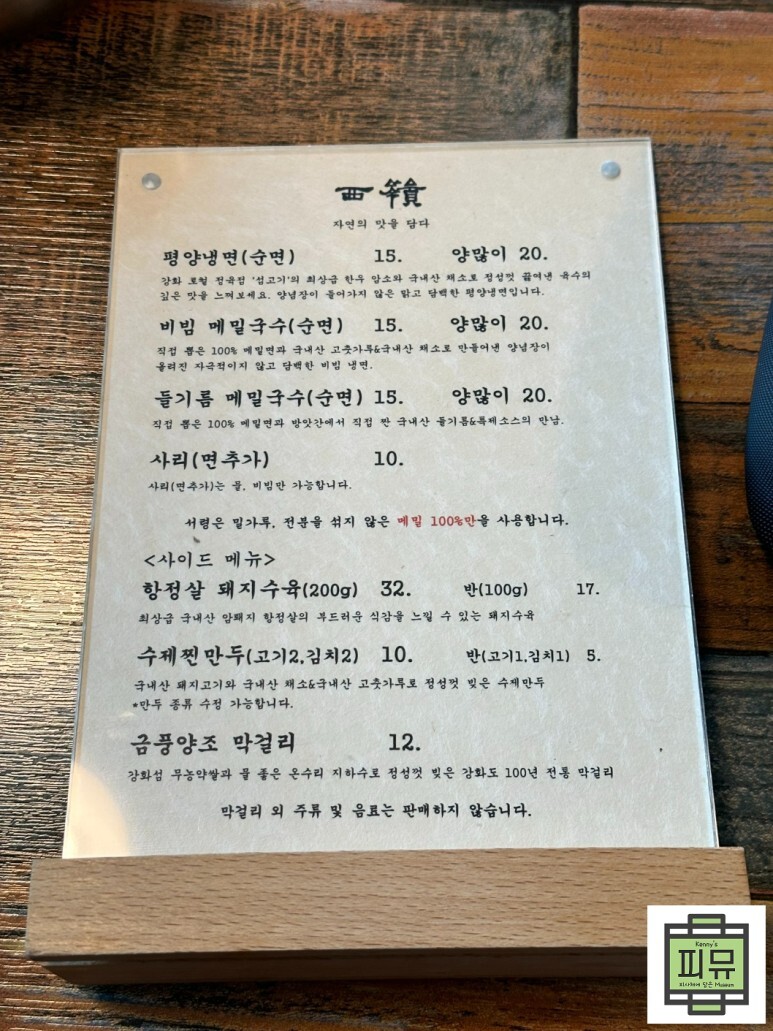 西嶺
자연의 맛을 담다
평양냉면(순면) 15. 양많이 20.
강화 로컬 정육점 '섬고기'의 최상급 한우 암소와 국내산 채소로 정성껏 끓여낸 육수의
깊은 맛을 느껴보세요. 양념장이 들어가지 않은 맑고 담백한 평양냉면입니다.
비빔 메밀국수(순면) 15. 양많이 20.
직접 뽑은 100% 메밀면과 국내산 고춧가루&국내산 채소로 만들어낸 양념장이
올려진 자극적이지 않고 담백한 비빔 냉면.
들기름 메밀국수(순면) 15. 양많이 20.
직접 뽑은 100% 메밀면과 방앗간에서 직접 짠 국내산 들기름&특제소스의 만남.
사리(면추가) 10.
사리(면추가)는 물, 비빔만 가능합니다.
서령은 밀가루, 전분을 섞지 않은 메밀 100%만을 사용합니다.
<사이드 메뉴>
항정살 돼지수육(200g) 32. 반(100g) 17.
최상급 국내산 암퇘지 항정살의 부드러운 식감을 느낄 수 있는 돼지수육
수제찐만두(고기2,김치2) 10. 반(고기1,김치1) 5.
국내산 돼지고기와 국내산 채소&국내산 고춧가루로 정성껏 빚은 수제만두
*만두 종류 수정 가능합니다.
금풍양조 막걸리 12.
강화섬 무농약쌀과 물 좋은 온수리 지하수로 정성껏 빚은 강화도 100년 전통 막걸리
막걸리 외 주류 및 음료는 판매하지 않습니다.
Kenny's
피뮤
피사체에 담은 Museum